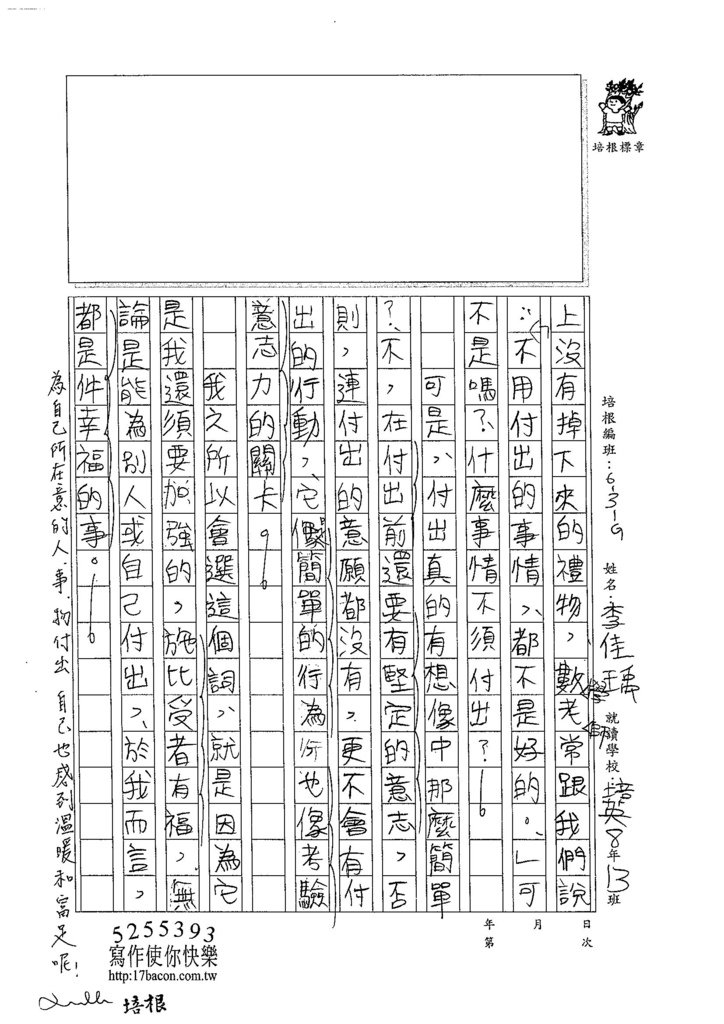 培根標章
培根編班:6-3-9 姓名:李佳瑀 就讀學校:培英8年13班
年 月 日
第 次
上沒有掉下來的禮物,數學老師常跟我們說
:「不用付出的事情,都不是好的。」可
不是嗎?什麼事情不須付出?
可是,付出真的有想像中那麼簡單
?不,在付出前還要有堅定的意志,否
則,連付出的意願都沒有,更不會有付
出的行動,它像簡單的行為,也像考驗
意志力的關卡。
我之所以會選這個詞,就是因為它
是我還須要加強的,施比受者有福,無
論是能為別人或自己付出,於我而言,
都是件幸福的事。
為自己所在意的人、事、物付出 自己也感到溫暖和富足呢!
5255393
寫作使你快樂
http:17bacon.com.tw
培根